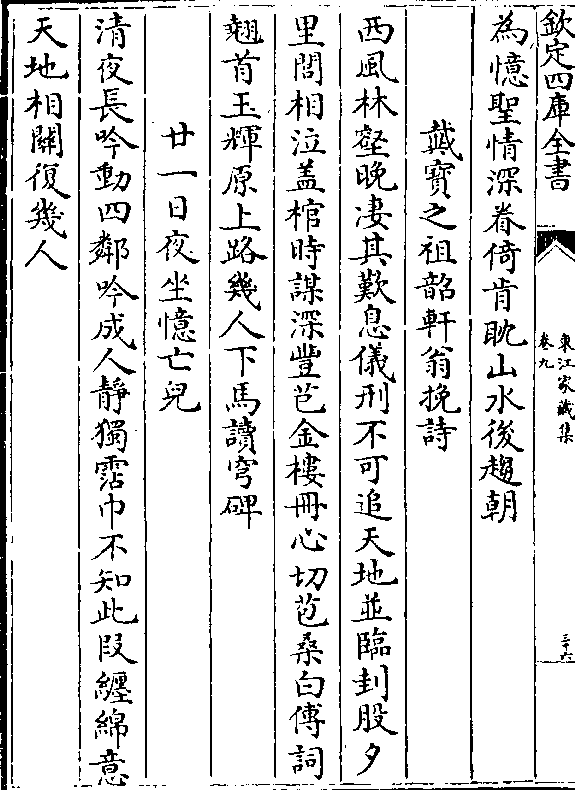 欽定四庫全書
東江家藏集
卷九
三十六
為憶聖情深眷倚肯耽山水後趨朝
戴寶之祖韶軒翁挽詩
西風林壑晚凄其歎息儀刑不可追天地並臨刲股夕
里閭相泣盖棺時謀深豐芑金樓冊心切苞桑白傅詞
翹首玉輝原上路幾人下馬讀穹碑
廿一日夜坐憶亡兒
清夜長吟動四鄰吟成人靜獨霑巾不知此段纏綿意
天地相關復幾人